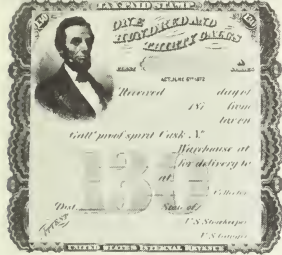 TAX-PAID STAMP
ONE
HUNDRED AND
THIRTY GALLS
ACT JUNE 6TH 1872
Received day of
187 from
tax on
Gall's proof spirit Cask No
Warehouse at
for delivery to
at
130
Dist. State of
U.S. Storekeeper
U.S. Gauger
UNITED STATES INTERNAL REVENUE